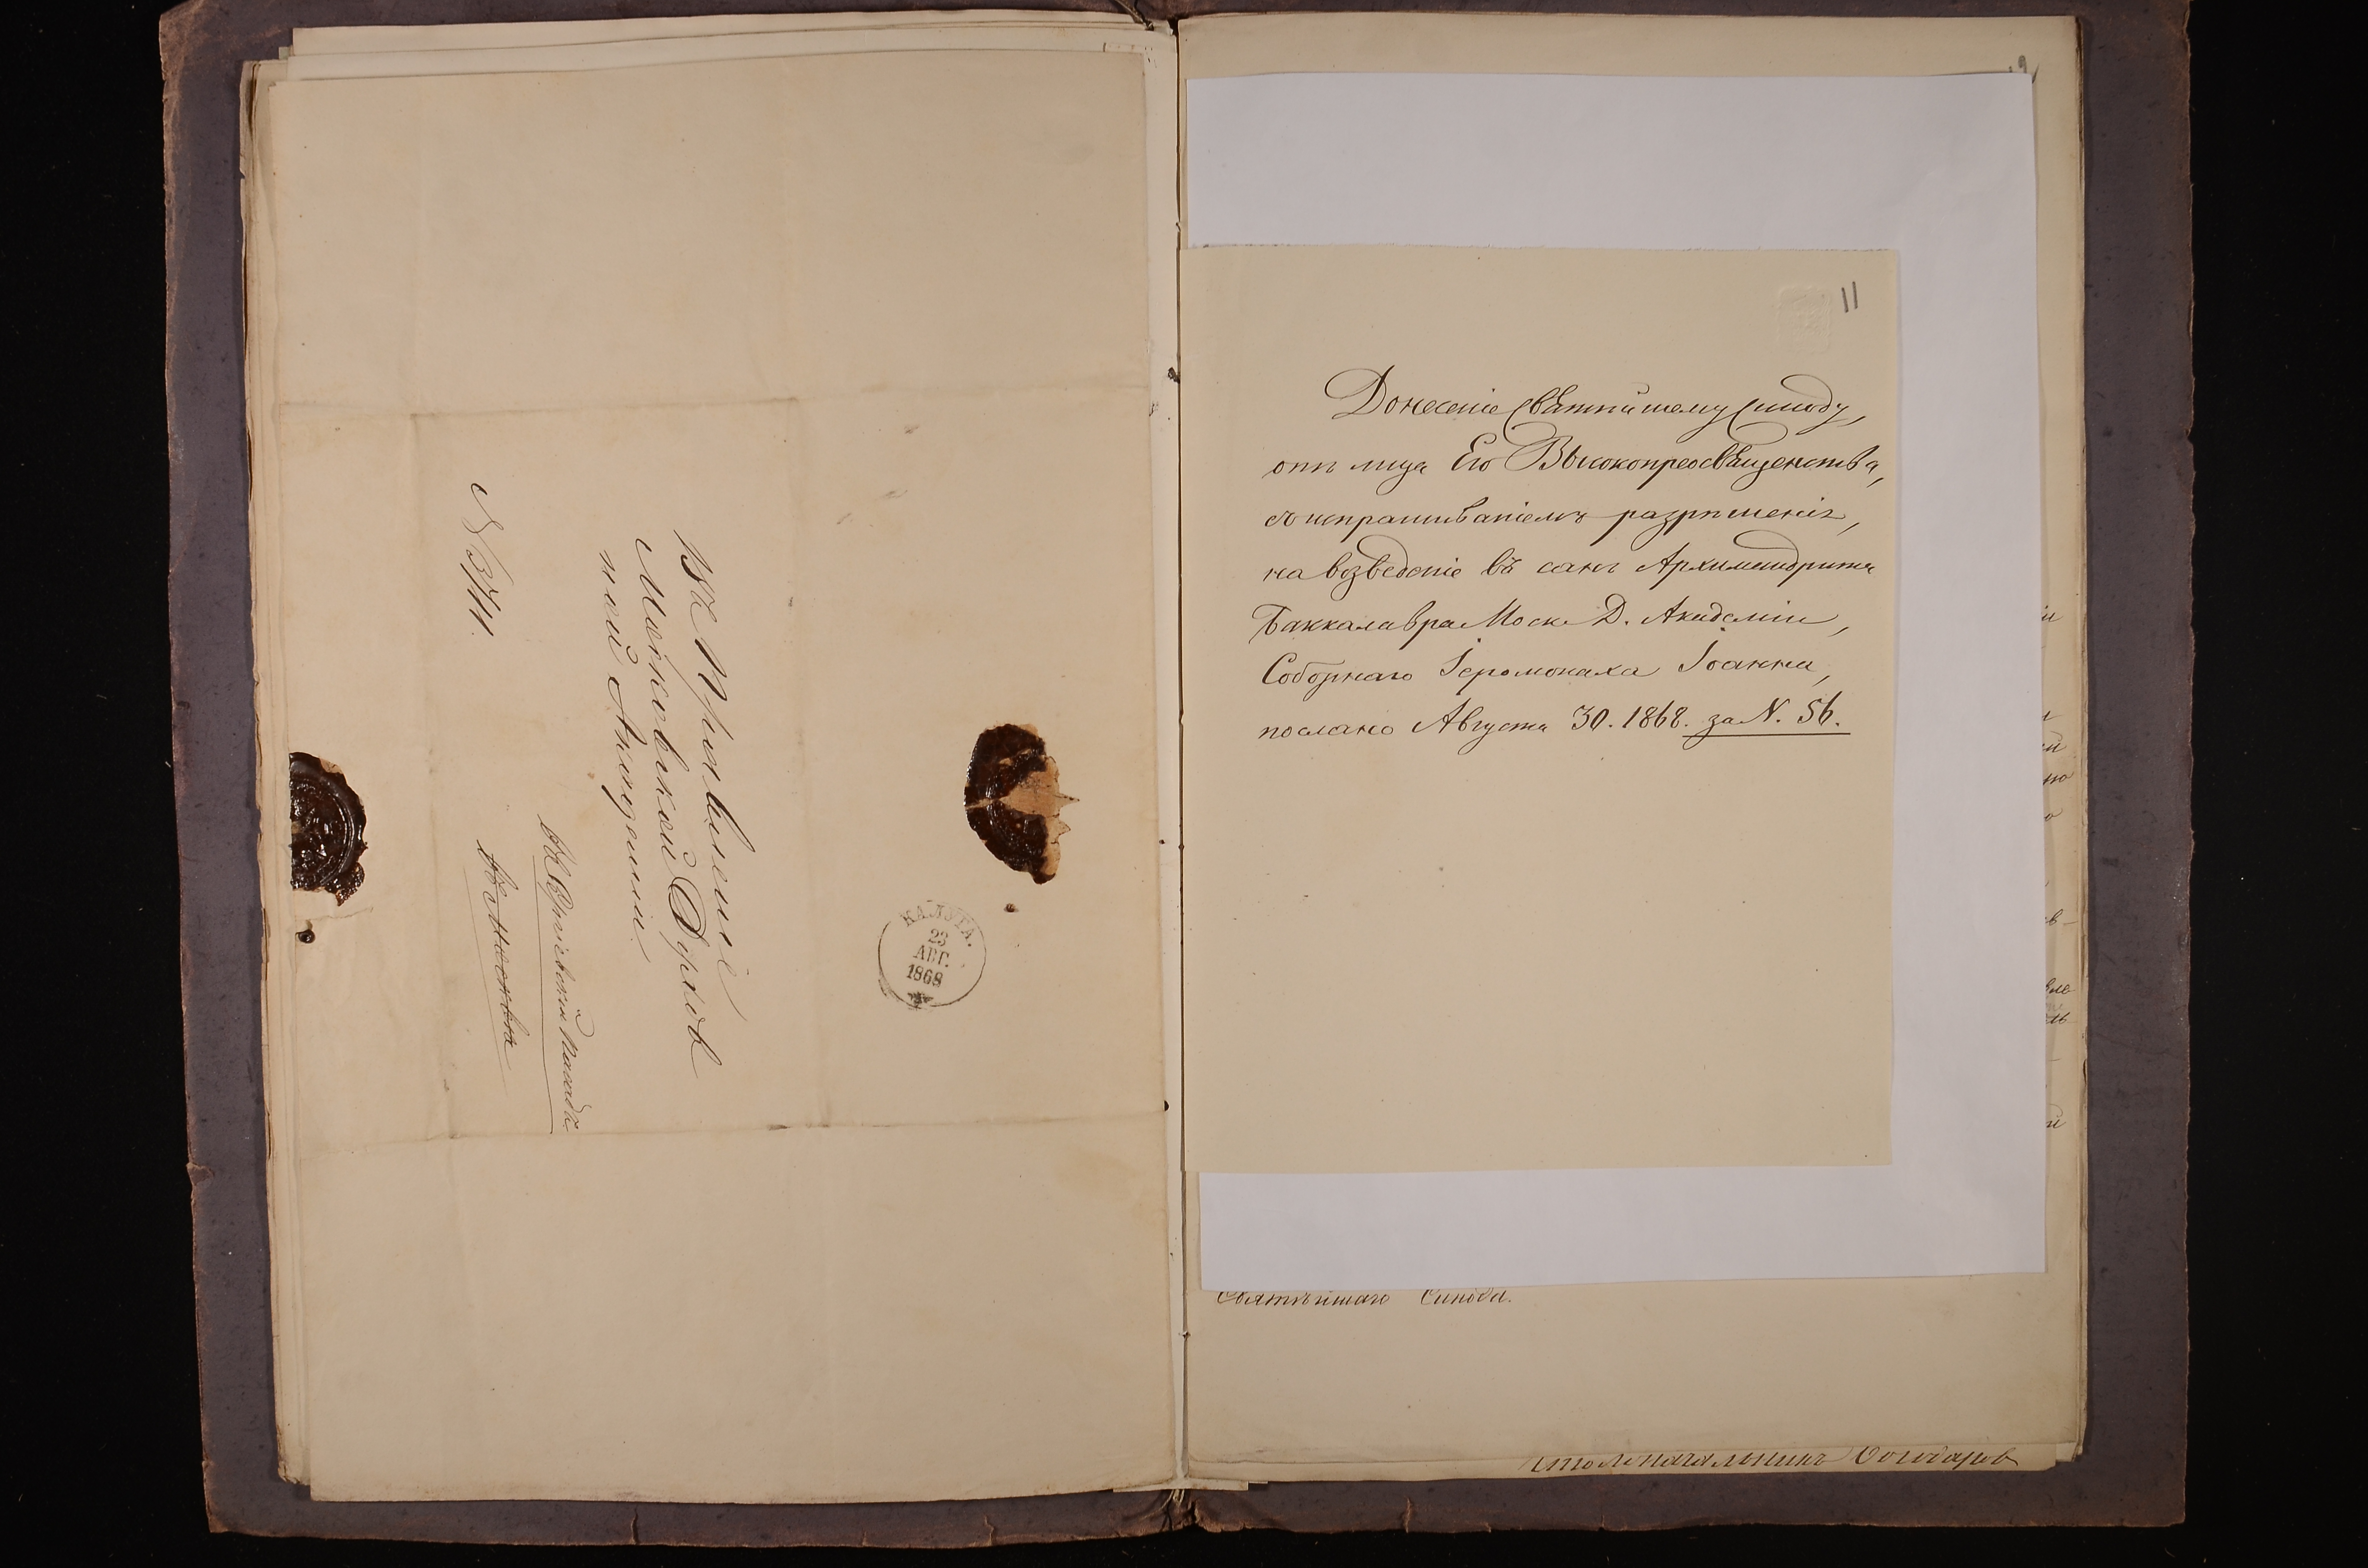 Въ Правленіе
Московской Духов
ной Академіи.
въ Сергіевскій Посадъ
въ Москвѣ
N 3711.
КАЛУГА.
23
АВГ.
1868
11
Донесеніе Святѣйшему Синоду,
отъ лица Его Высокопреосвященства,
съ испрашиваніемъ разрѣшенія,
на возведеніе въ санъ Архимандрита
Баккалавра Моск. Д. Академіи,
Соборнаго Іеромонаха Іоанна,
послано Августа 30. 1868. за N. 56.
Святѣйшаго Синода.
Столоначальникъ